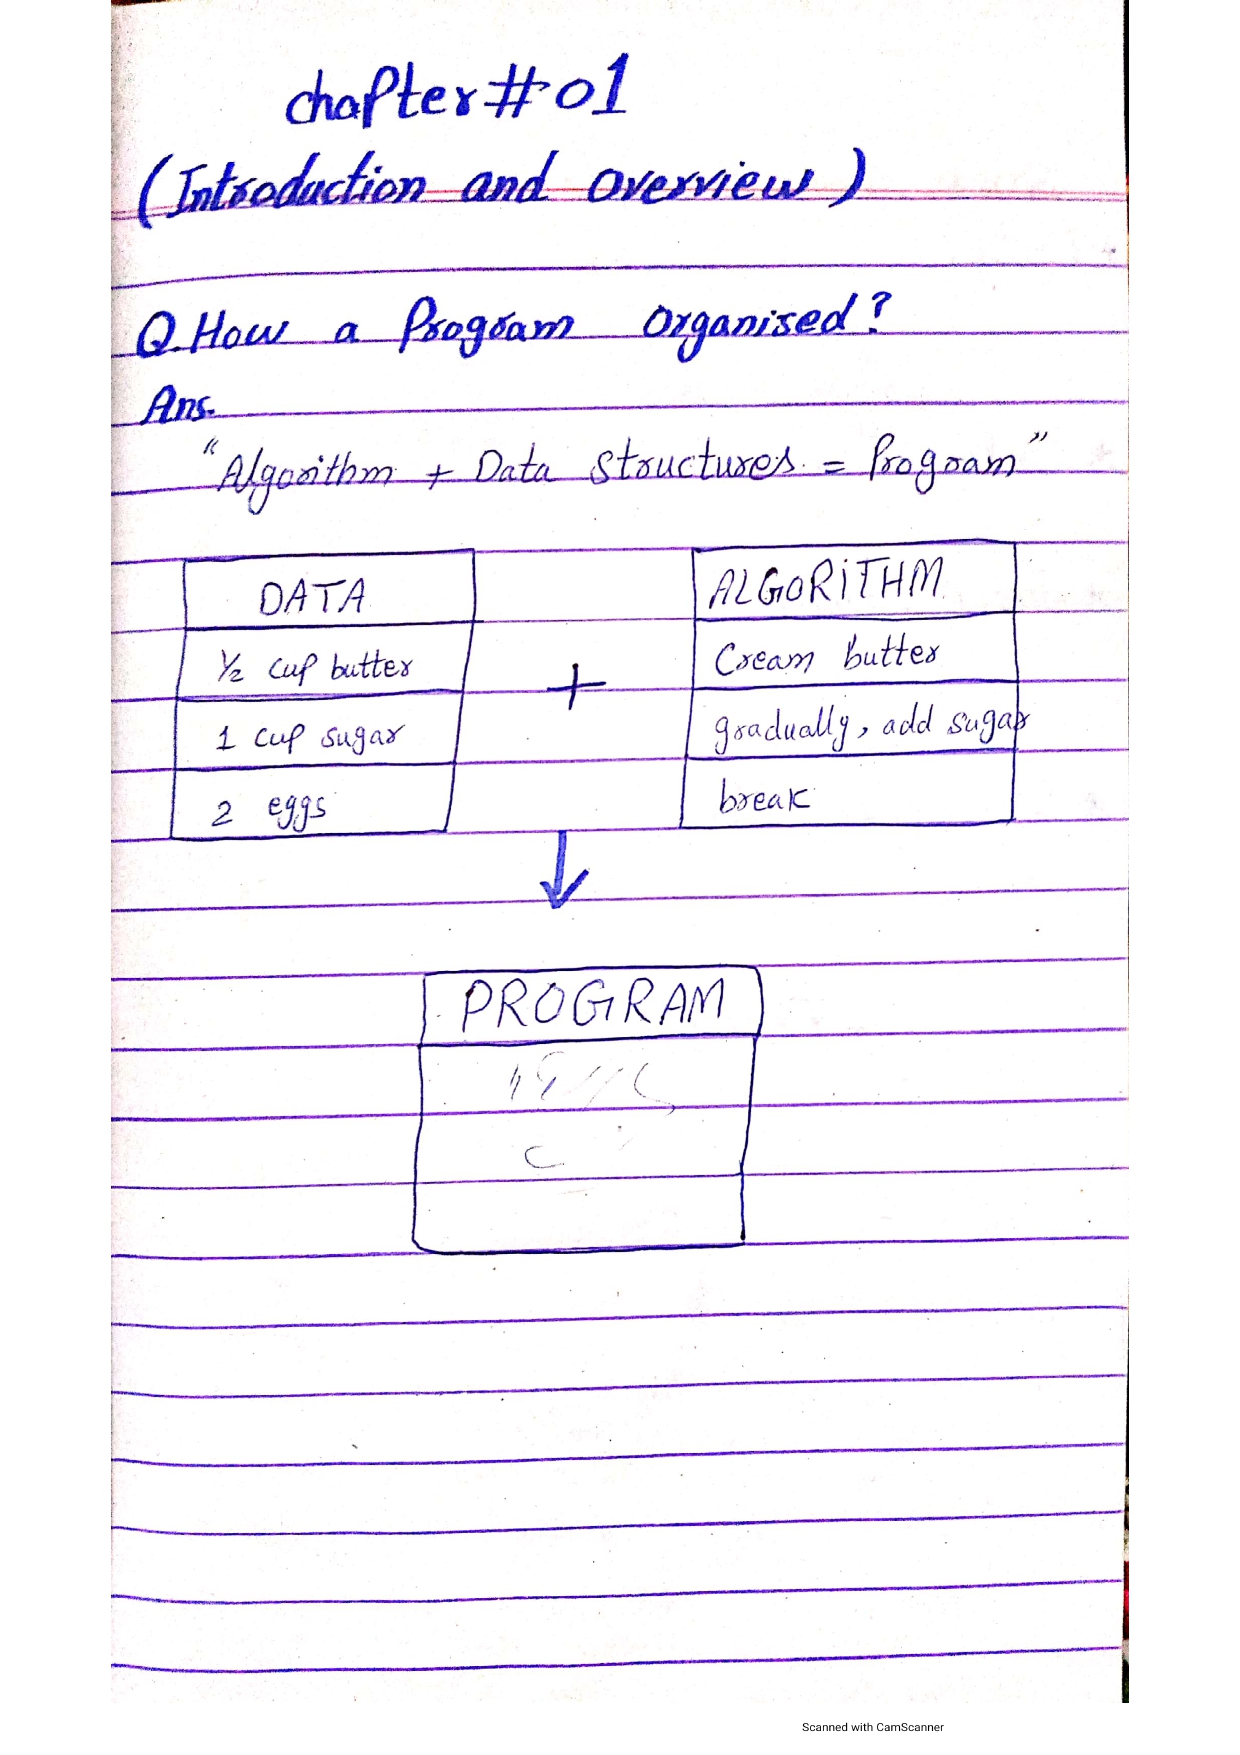 chapter#01
(Introduction and Overview)
Q. How a Program Organised?
Ans.
"Algorithm + Data Structures = Program"
DATA
½ cup butter
1 cup sugar
2 eggs
+
ALGORITHM
Cream butter
gradually, add sugar
break
PROGRAM
Scanned with CamScanner